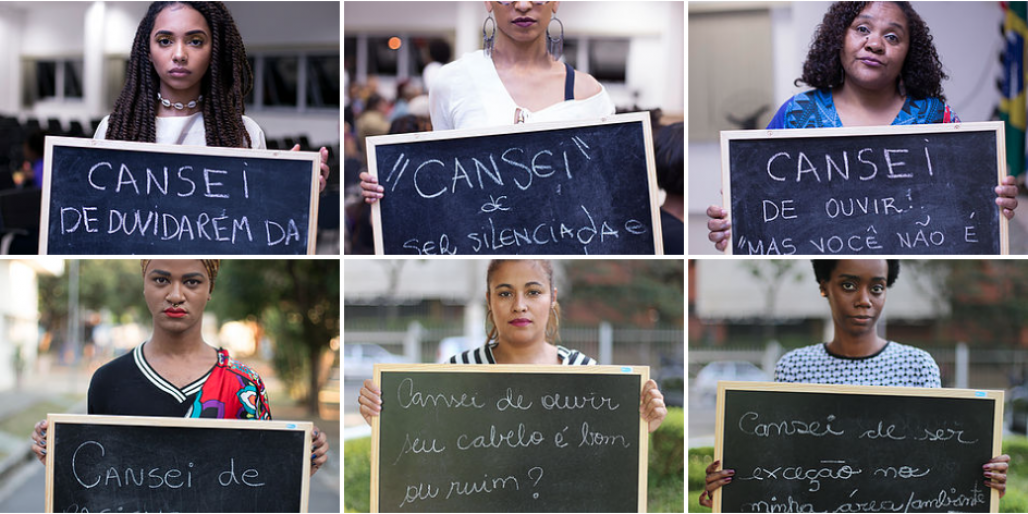 CANSEI
DE DUVIDAREM DA
"CANSEI"
de
SER SILENCIADA e
CANSEI
DE OUVIR:
"MAS VOCÊ NÃO É
CANSEI de
Cansei de ouvir
seu cabelo é bom
ou ruim?
Cansei de ser
exceção na
minha área/ambiente